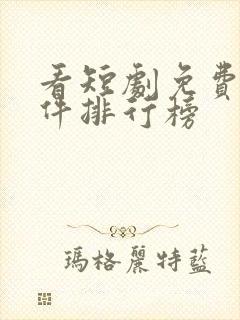 看短劇免費
件排行榜
瑪格麗特藍